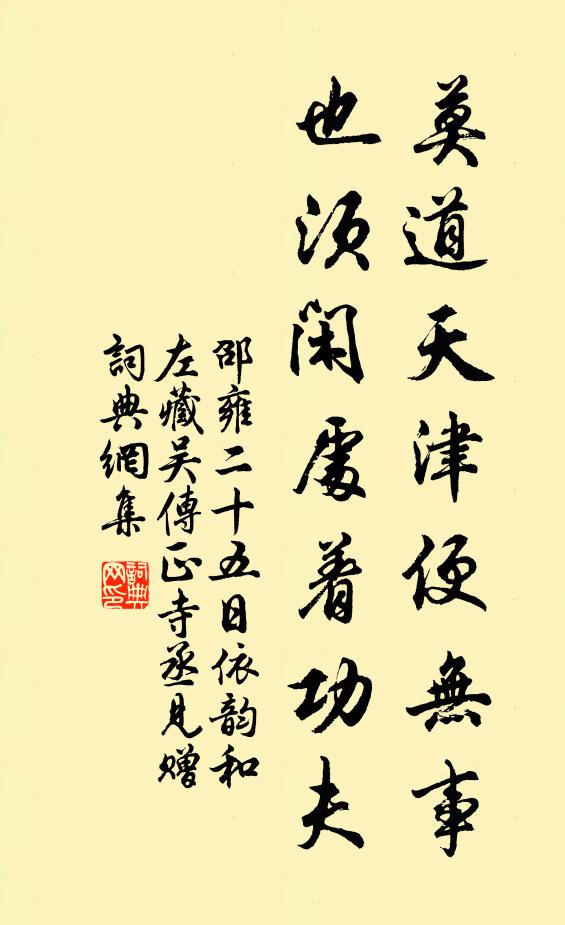 莫道天津便無事
也須閑處着功夫
邵雍二十五日依韵和
左藏吴傳正寺丞見赠
詞典網集
詞典
网印